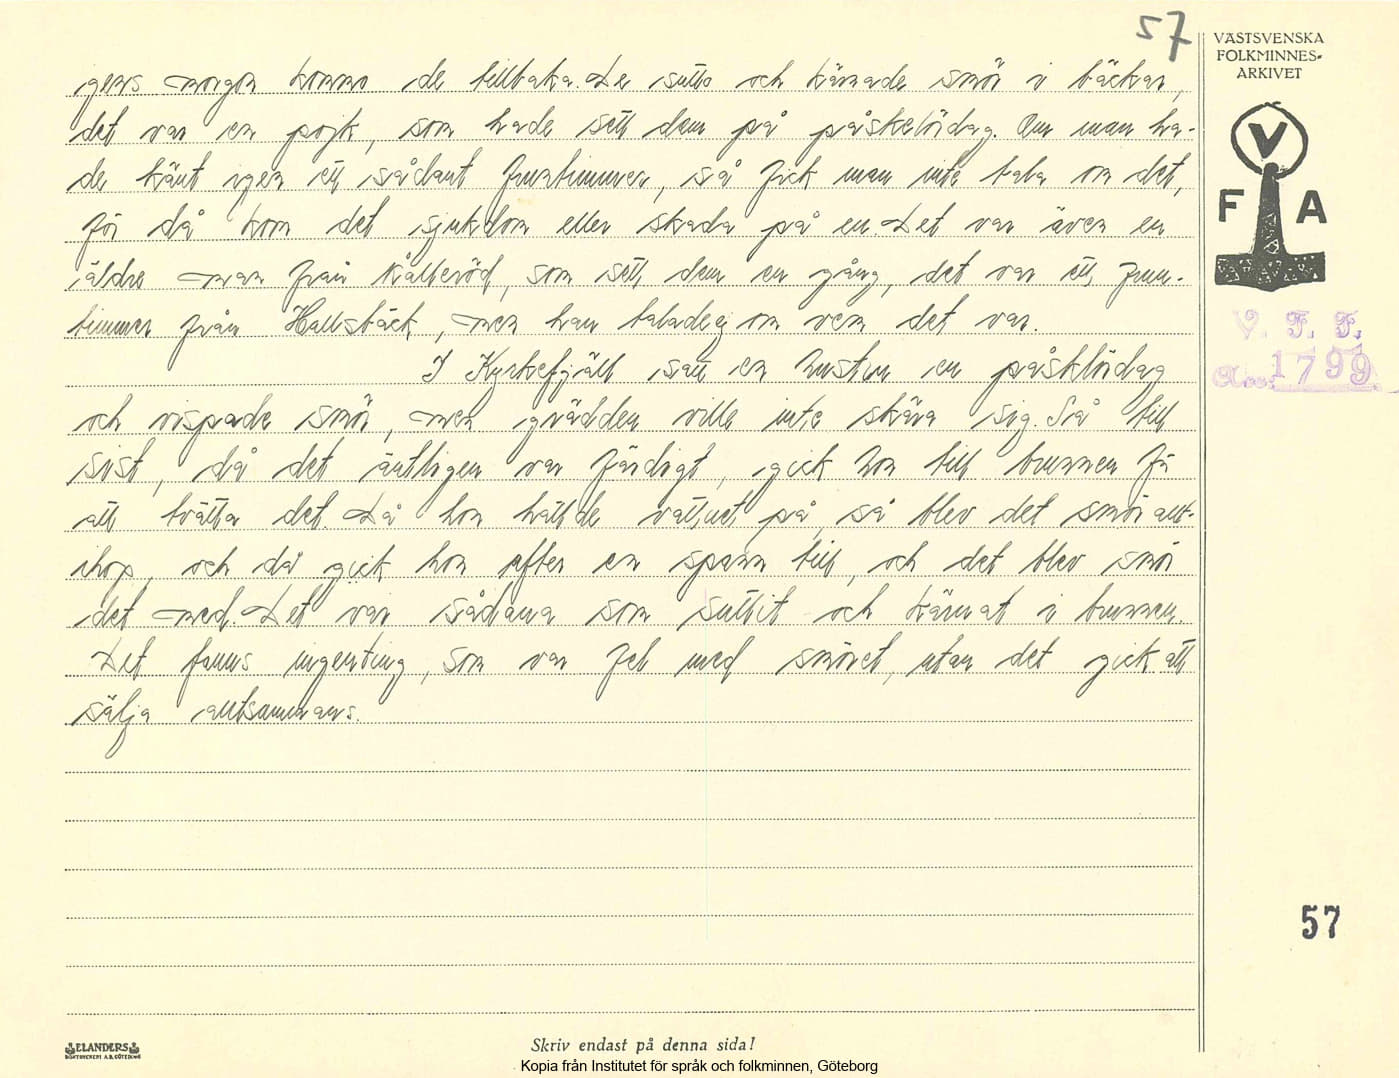 57
VÄSTSVENSKA
FOLKMINNES-
ARKIVET
gens morgon komma de tillbaka. De sutto och kärnade smör i bäcken,
det var en pojk, som hade sett dem på påskelördag. Om man ha-
de känt igen ett sådant fruntimmer, så fick man inte tala om det,
för då kom det sjukdom eller skada på en. Det var även en
äldre man från Kålleröd, som sett dem en gång, det var ett frun-
timmer från Hallsbäck, men han talade ej om vem det var.
I Kyrkefjäll satt en hustru en påsklördag
och vispade smör, men grädden ville inte skära sig. Så till
sist, då det äntligen var färdigt, gick hon till brunnen för
att tvätta det. Då hon hällde vattnet på, så blev det smör allt-
ihop, och då gick hon efter en spann till, och det blev smör
det med. Det var sådana som suttit och kärnat i brunnen.
Det fanns ingenting, som var fel med smöret, utan det gick att
sälja alltsammans.
V
F A
V. F. F.
Acc. 1799.
57
ELANDERS
BOKTRYCKERI A.B. GÖTEBORG
Skriv endast på denna sida!
Kopia från Institutet för språk och folkminnen, Göteborg